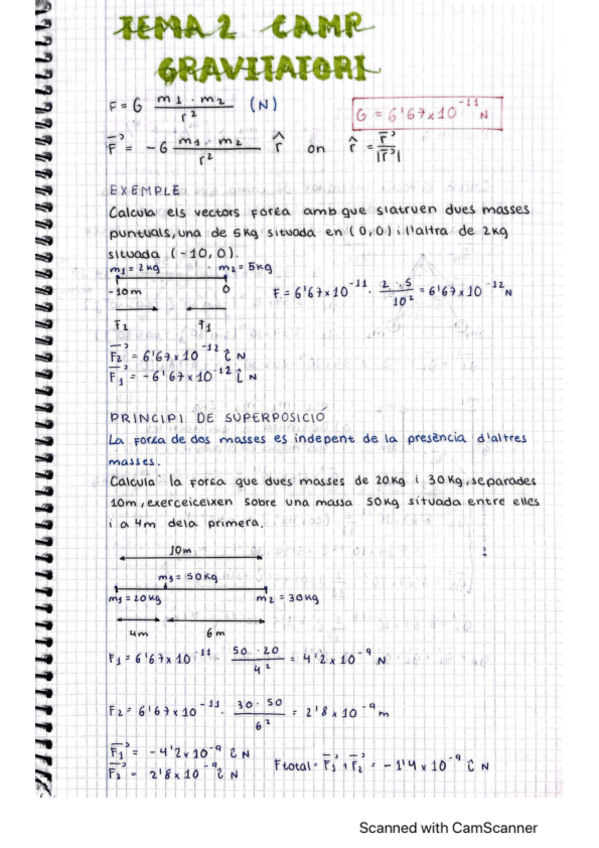 TEMA 2 CAMP
GRAVITATORI
F = G m1 · m2 / r² (N)
G = 6'67 x 10⁻¹¹ N
F⃗ = - G m1 · m2 / r² r̂ on r̂ = r⃗ / |r⃗|
EXEMPLE
Calcula els vectors força amb que s'atruen dues masses
puntuals, una de 5Kg situada en (0,0) i l'altra de 2kg
situada (-10,0).
m1 = 2kg · m2 = 5kg
-10m 0
F = 6'67 x 10⁻¹¹ · 2 · 5 / 10² = 6'67 x 10⁻¹² N
F2 F1
F⃗2 = 6'67 x 10⁻¹² î N
F⃗1 = - 6'67 x 10⁻¹² î N
PRINCIPI DE SUPERPOSICIÓ
La força de dos masses es indepent de la presència d'altres
masses.
Calcula la força que dues masses de 20Kg i 30Kg, separades
10m, exerceixen sobre una massa 50Kg situada entre elles
i a 4m dela primera.
10m
m3 = 50Kg
m1 = 20Kg m2 = 30Kg
4m 6m
F1 = 6'67 x 10⁻¹¹ · 50 · 20 / 4² = 4'2 x 10⁻⁹ N
F2 = 6'67 x 10⁻¹¹ · 30 · 50 / 6² = 2'8 x 10⁻⁹ m
F⃗1 = - 4'2 x 10⁻⁹ î N
F⃗2 = 2'8 x 10⁻⁹ î N
Ftotal = F⃗1 + F⃗2 = - 1'4 x 10⁻⁹ î N
Scanned with CamScanner